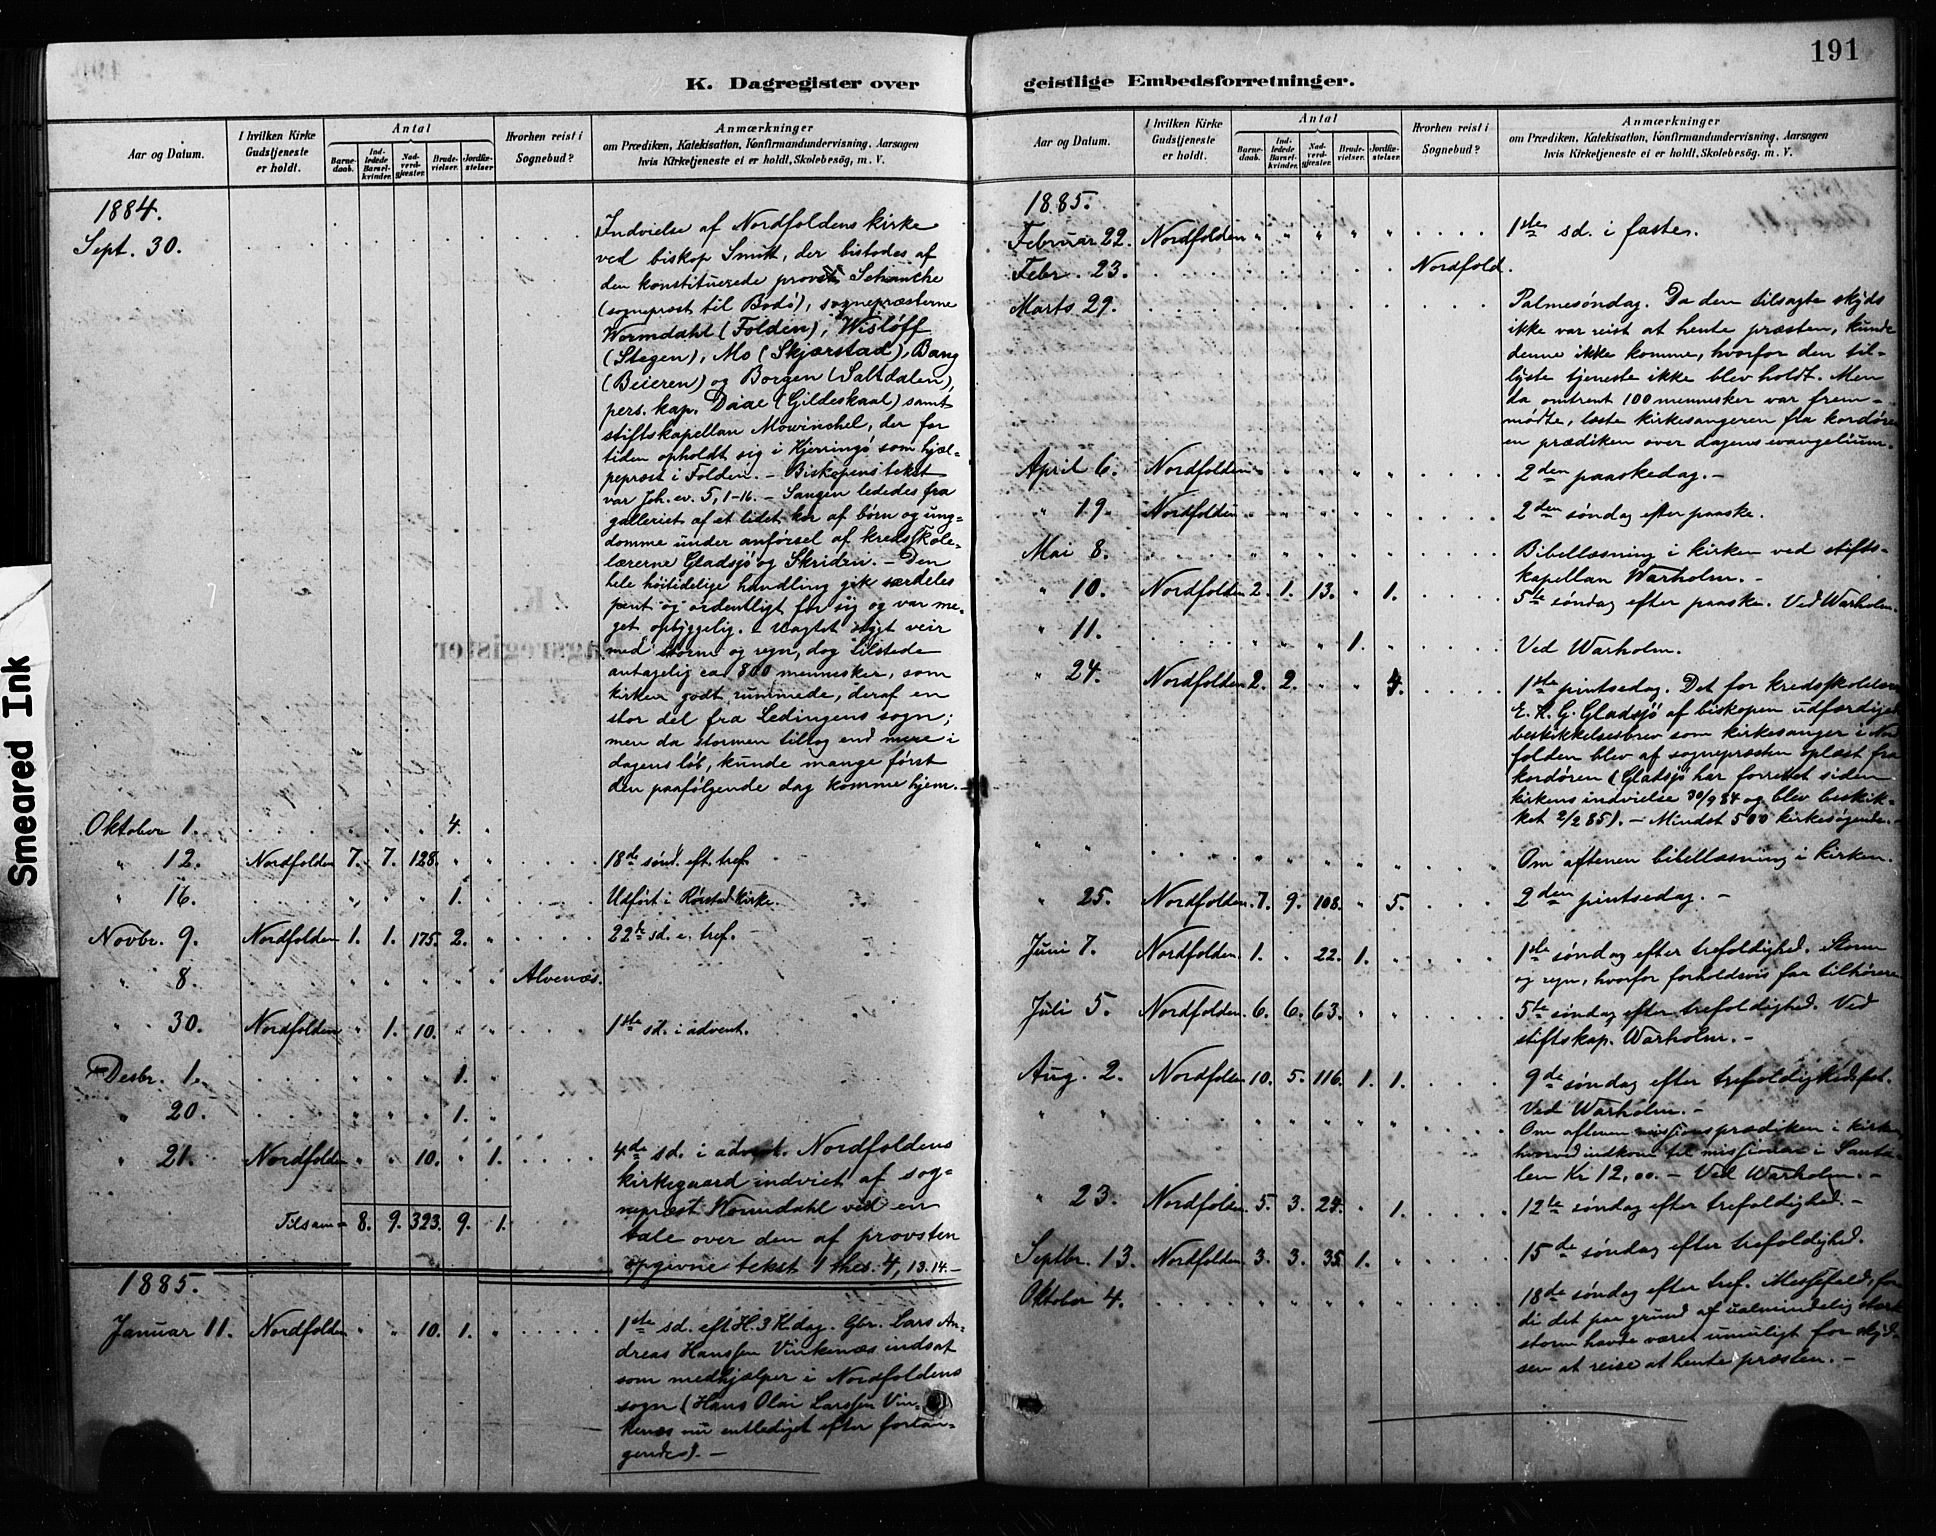 191
K. Dagregister over
geistlige Embedsforretninger.
Aar og Datum.
I hvilken Kirke Gudstjeneste er holdt.
Antal
Barnedaab.
Indledede Barselkvinder.
Nadverdgjæster.
Brudevielser.
Jordfæstelser
Hvorhen reist i Sognebud?
Anmærkninger
om Prædiken, Katekisation, Konfirmandundervisning, Aarsagen
hvis Kirketjeneste ei er holdt, Skolebesøg, m. V.
1884.
Sept. 30.
Indvielse af Nordfoldens kirke
ved biskop Smitt, der bistodes af
den konstituerede provst Schanche
(sogneprest til Bodø), sognepræsterne
Wormdahl (Folden), Wisløff
(Stegen), Mo (Skjærstad), Bang
(Beieren) og Borgen (Saltdalen),
pers. kap. Daae (Gildeskaal) samt
stiftskapellan Mowinckel, der for
tiden opholdt sig i Kjerringø som hjæl-
peprest i Folden. – Biskopens tekst
var Joh. ev. 5, 1-16. – Sangen lededes fra
galleriet af et lidet kor af børn og ung-
domme under anførsel af kredsskole-
lærerne Gladsjø og Skridin. – Den
hele høitidelige handling gik særdeles
pent og ordentligt for sig og var me-
get opbyggelig. – Uagtet stygt veir
med storm og regn, dog tilstede
antagelig ca 800 mennesker, som
kirken godt rummede, deraf en
stor del fra Ledingens sogn;
men da stormen tiltog end mere i
dagens løb, kunde mange først
den paafølgende dag komme hjem. –
Oktober 1. . . . . " " " 4. "
" 12. Nordfolden 7. 7. 128. " " . . . . 18de sønd. eft. tref.
" 16. . . . . " " " 1. . . . . Udført i Rørstad kirke.
Novbr. 9. Nordfolden 1. 1. 175. 2. " . . . . 22de sd. e. tref.
" 8. . . . . " " " " " Alvenæs.
" 30. Nordfolden " 1. 10. " " . . . . 1ste sd. i advent.
Desbr. 1. . . . . " " " 1. "
" 20. . . . . " " " 1. "
" 21. Nordfolden " " 10. " 1. . . . . 4de sd. i advent. Nordfoldens
kirkegaard indviet af sog-
neprest Wormdahl ved en
tale over den af provsten
opgivne tekst 1 thes. 4, 13.14. –
Tilsam= 8. 9. 323. 9. 1.
1885.
Januar 11. Nordfolden " " 10. 1. " . . . . 1ste sd. eft H. 3 K. dag. Gbr. Lars An-
dreas Hanssen Vinkenæs indsat
som medhjælper i Nordfoldens
sogn (Hans Olai Larssen Vin-
kenæs nu entlediget efter forlan-
gende). –
Aar og Datum.
I hvilken Kirke Gudstjeneste er holdt.
Antal
Barnedaab.
Indledede Barselkvinder.
Nadverdgjæster.
Brudevielser.
Jordfæstelser
Hvorhen reist i Sognebud?
Anmærkninger
om Prædiken, Katekisation, Konfirmandundervisning, Aarsagen
hvis Kirketjeneste ei er holdt, Skolebesøg. m. V.
1885.
Februar 22. Nordfolden " " " " " . . . . 1ste sd. i faste.
Febr. 23. . . . . " " Nordfold.
Marts 29. . . . . Palmesøndag. Da den tilsagte skyds
ikke var reist at hente præsten, kunde
denne ikke komme, hvorfor den til-
lyste tjeneste ikke blev holdt. Men
da omtrent 100 mennesker var frem-
mødte, læste kirkesangeren fra kordøren
en prædiken over dagens evangelium.
April 6. Nordfolden " " " " " . . . . 2den paaskedag. –
" 19. Nordfolden " " " " " . . . . 2den søndag efter paaske.
Mai 8. . . . . " " " " " . . . . Bibellæsning i kirken ved stifts-
kapellan Warholm. –
" 10. Nordfolden 2. 1. 13. " 1. . . . . 5te søndag efter paaske. Ved Warholm.
" 11. . . . . " " " 1. . . . . Ved Warholm.
" 24. Nordfolden 2. 2. " " 4. . . . . 1ste pintsedag. Det for kredsskolelærer
E. H. G. Gladsjø af biskopen udfærdigede
beskikkelsesbrev som kirkesanger i Nord
folden blev af sognepræsten oplæst fra
kordøren (Gladsjø har forrettet siden
kirkens indvielse 30/9 84 og blev beskik-
ket 2/2 85). – Mindst 500 kirkesøgende. –
" " . . . . " " " " " . . . . Om aftenen bibellæsning i kirken.
" 25. Nordfolden. 7. 9. 108. " 5. . . . . 2den pintsedag. –
Juni 7. Nordfolden. 1. " 22. 1. " . . . . 1ste søndag efter trefoldighed. Storm
og regn, hvorfor forholdsvis faa tilhørere
Juli 5. Nordfolden. 6. 6. 63. " " . . . . 5te søndag efter trefoldighed. Ved
stiftskap. Warholm. –
Aug. 2. Nordfolden 10. 5. 116. 1. 1. . . . . 9de søndag efter trefoldighedsfest.
Ved Warholm. –
" " . . . . " " " " " . . . . Om aftenen missionsprædiken i kirken
hvorved indkom til missionen i Santa-
len Kr 12,00. – Ved Warholm. –
" 23. Nordfolden 5. 3. 24. " 1. . . . . 12te søndag efter trefoldighed. –
Septbr. 13. Nordfolden. 3. 3. 35. 1. " . . . . 15de søndag efter trefoldighed.
Oktober 4. . . . . " " " " " . . . . 18de søndag efter tref. Messefald, for
di det paa grund af ualmindelig stærk
storm havde været umuligt for skyd-
sen at reise at hente præsten. –
Smeared Ink